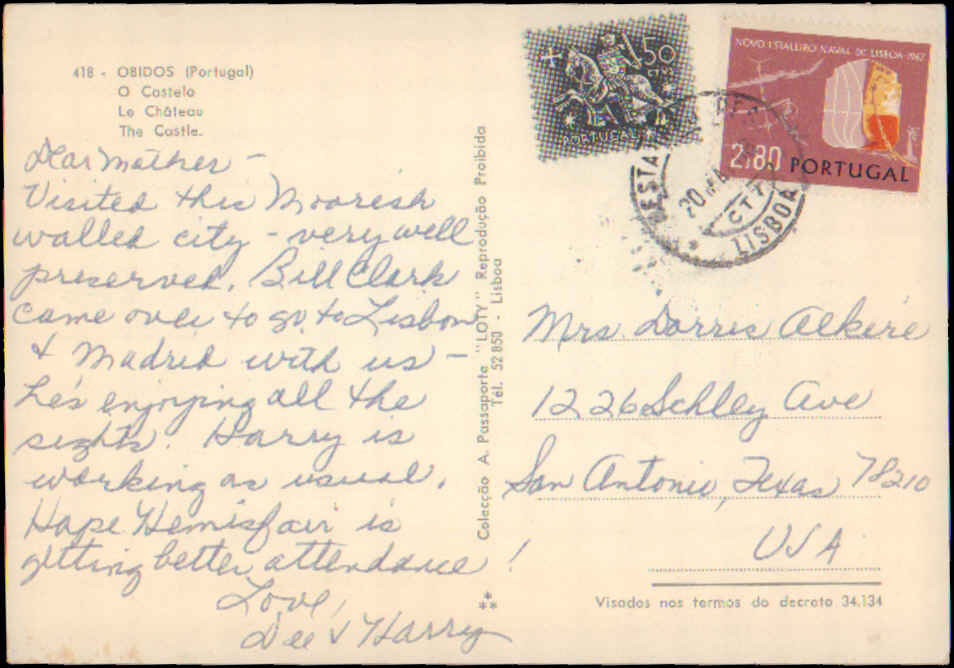 418 - OBIDOS (Portugal)
O Castelo
Le Château
The Castle.
Dear Mother -
Visited this Moorish
walled city - very well
preserved. Bill Clark
came over to go to Lisbon
& Madrid with us -
he's enjoying all the
sights. Harry is
working as usual.
Hope Hemisfair is
getting better attendance!
Love,
Dee & Harry
Colecção A. Passaporte "LOTY" Reprodução Proibida
Tél. 52 850 - Lisboa
50
CTVS
PORTUGAL
NOVO ESTALEIRO NAVAL DE LISBOA - 1967
2$80 PORTUGAL
20
CTT
LISBOA
Mrs. Dorris Alkire
1226 Schley Ave
San Antonio, Texas 78210
USA
Visados nos termos do decreto 34.134